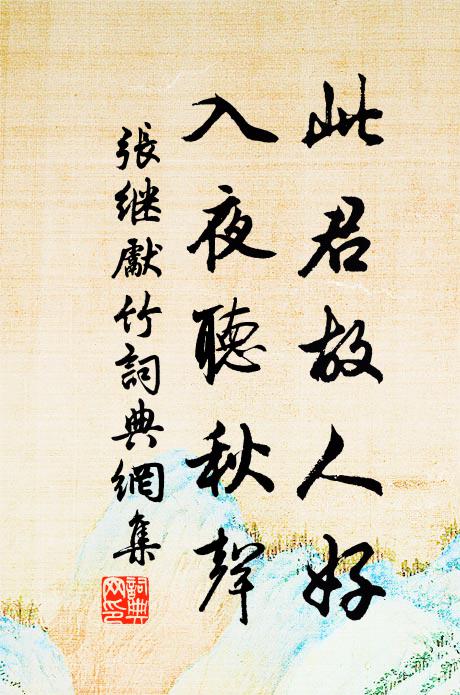 此君故人好
入夜聽秋聲
張继獻竹詞典網集
詞典